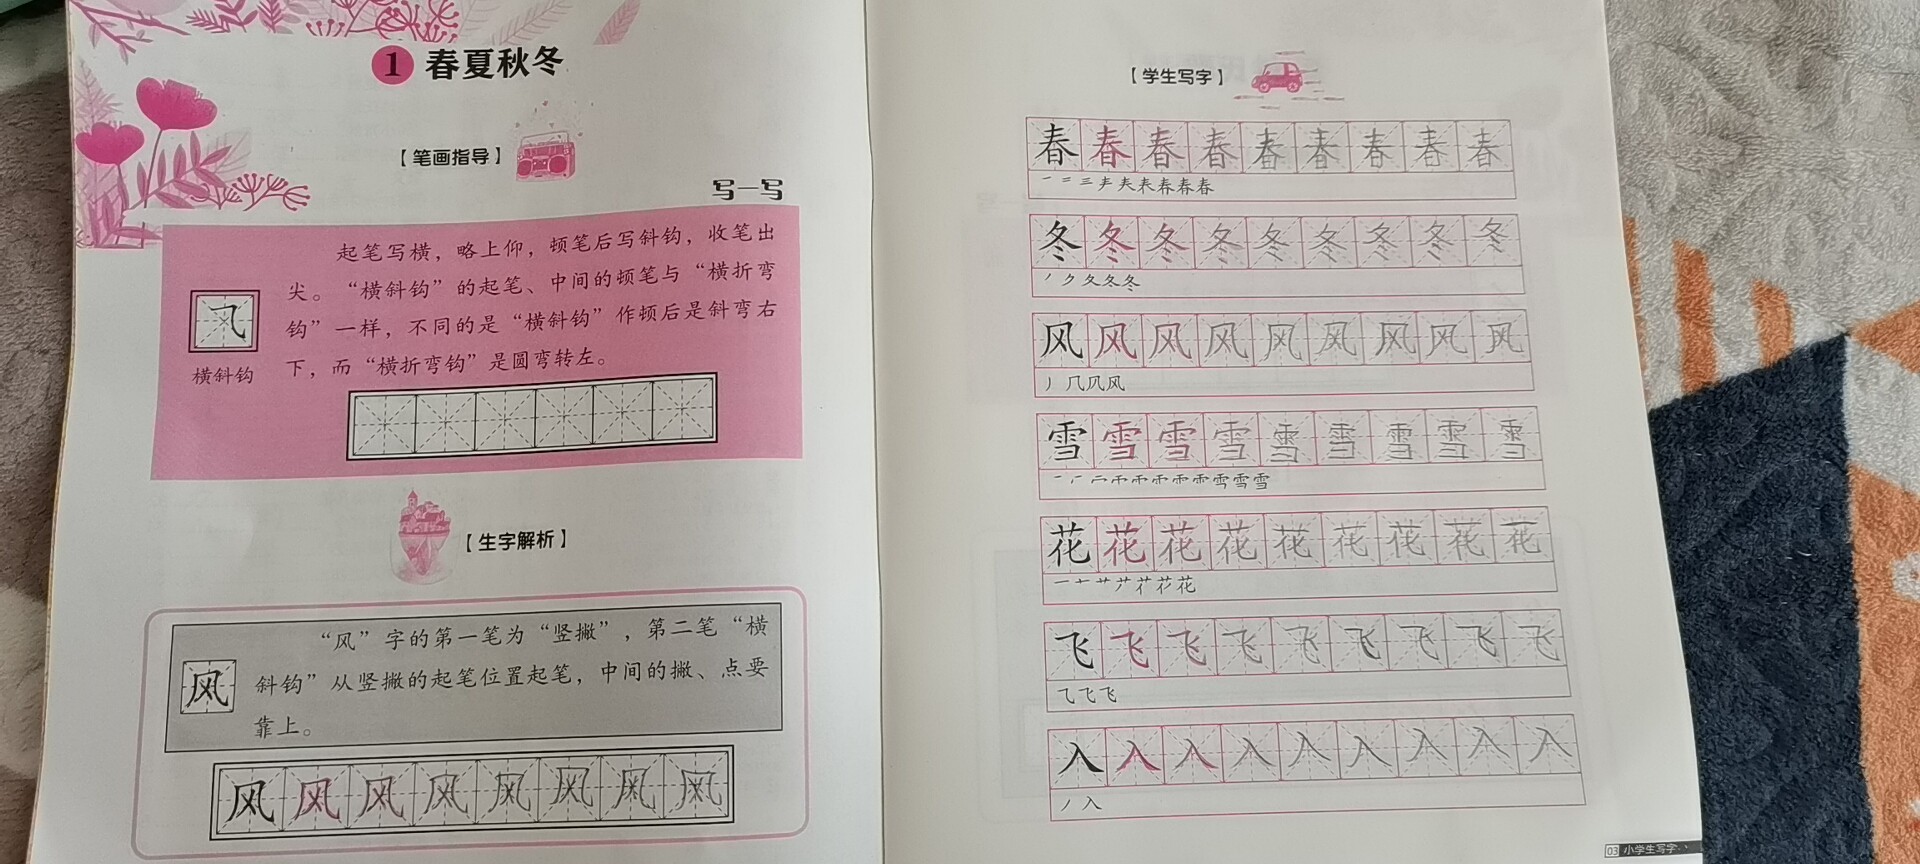 1 春夏秋冬
【笔画指导】
写一写
起笔写横，略上仰，顿笔后写斜钩，收笔出
尖。“横斜钩”的起笔、中间的顿笔与“横折弯
钩”一样，不同的是“横斜钩”作顿后是斜弯右
下，而“横折弯钩”是圆弯转左。
⺄
横斜钩
【生字解析】
“风”字的第一笔为“竖撇”，第二笔“横
斜钩”从竖撇的起笔位置起笔，中间的撇、点要
靠上。
风
风风风风风风风风
【学生写字】
春春春春春春春春春
冬冬冬冬冬冬冬冬冬
风风风风风风风风风
雪雪雪雪雪雪雪雪雪
花花花花花花花花花
飞飞飞飞飞飞飞飞飞
入入入入入入入入入
丿入
03 小学生写字